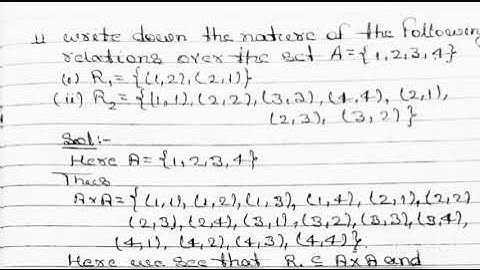 1/ write down the nature of the following
relations over the set A = {1,2,3,4}
(i) R₁ = {(1,2), (2,1)}
(ii) R₂ = {(1,1), (2,2), (3,3), (4,4), (2,1),
(2,3), (3,2)}
Sol:-
Here A = {1,2,3,4}
Thus
A×A = {(1,1), (1,2), (1,3), (1,4), (2,1), (2,2)
(2,3), (2,4), (3,1), (3,2), (3,3), (3,4),
(4,1), (4,2), (4,3), (4,4)}
Here we see that R₁ ⊆ A×A and